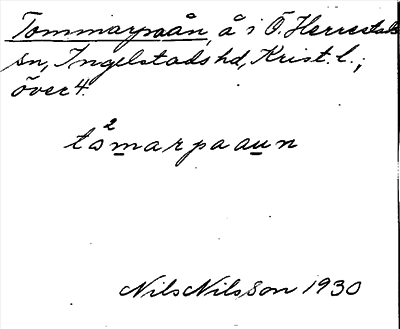 Tommarpaån, å i Ö. Herrestads
sn, Ingelstads hd, Krist. l.;
över 4.
tò²marpaaun
Nils Nilsson 1930